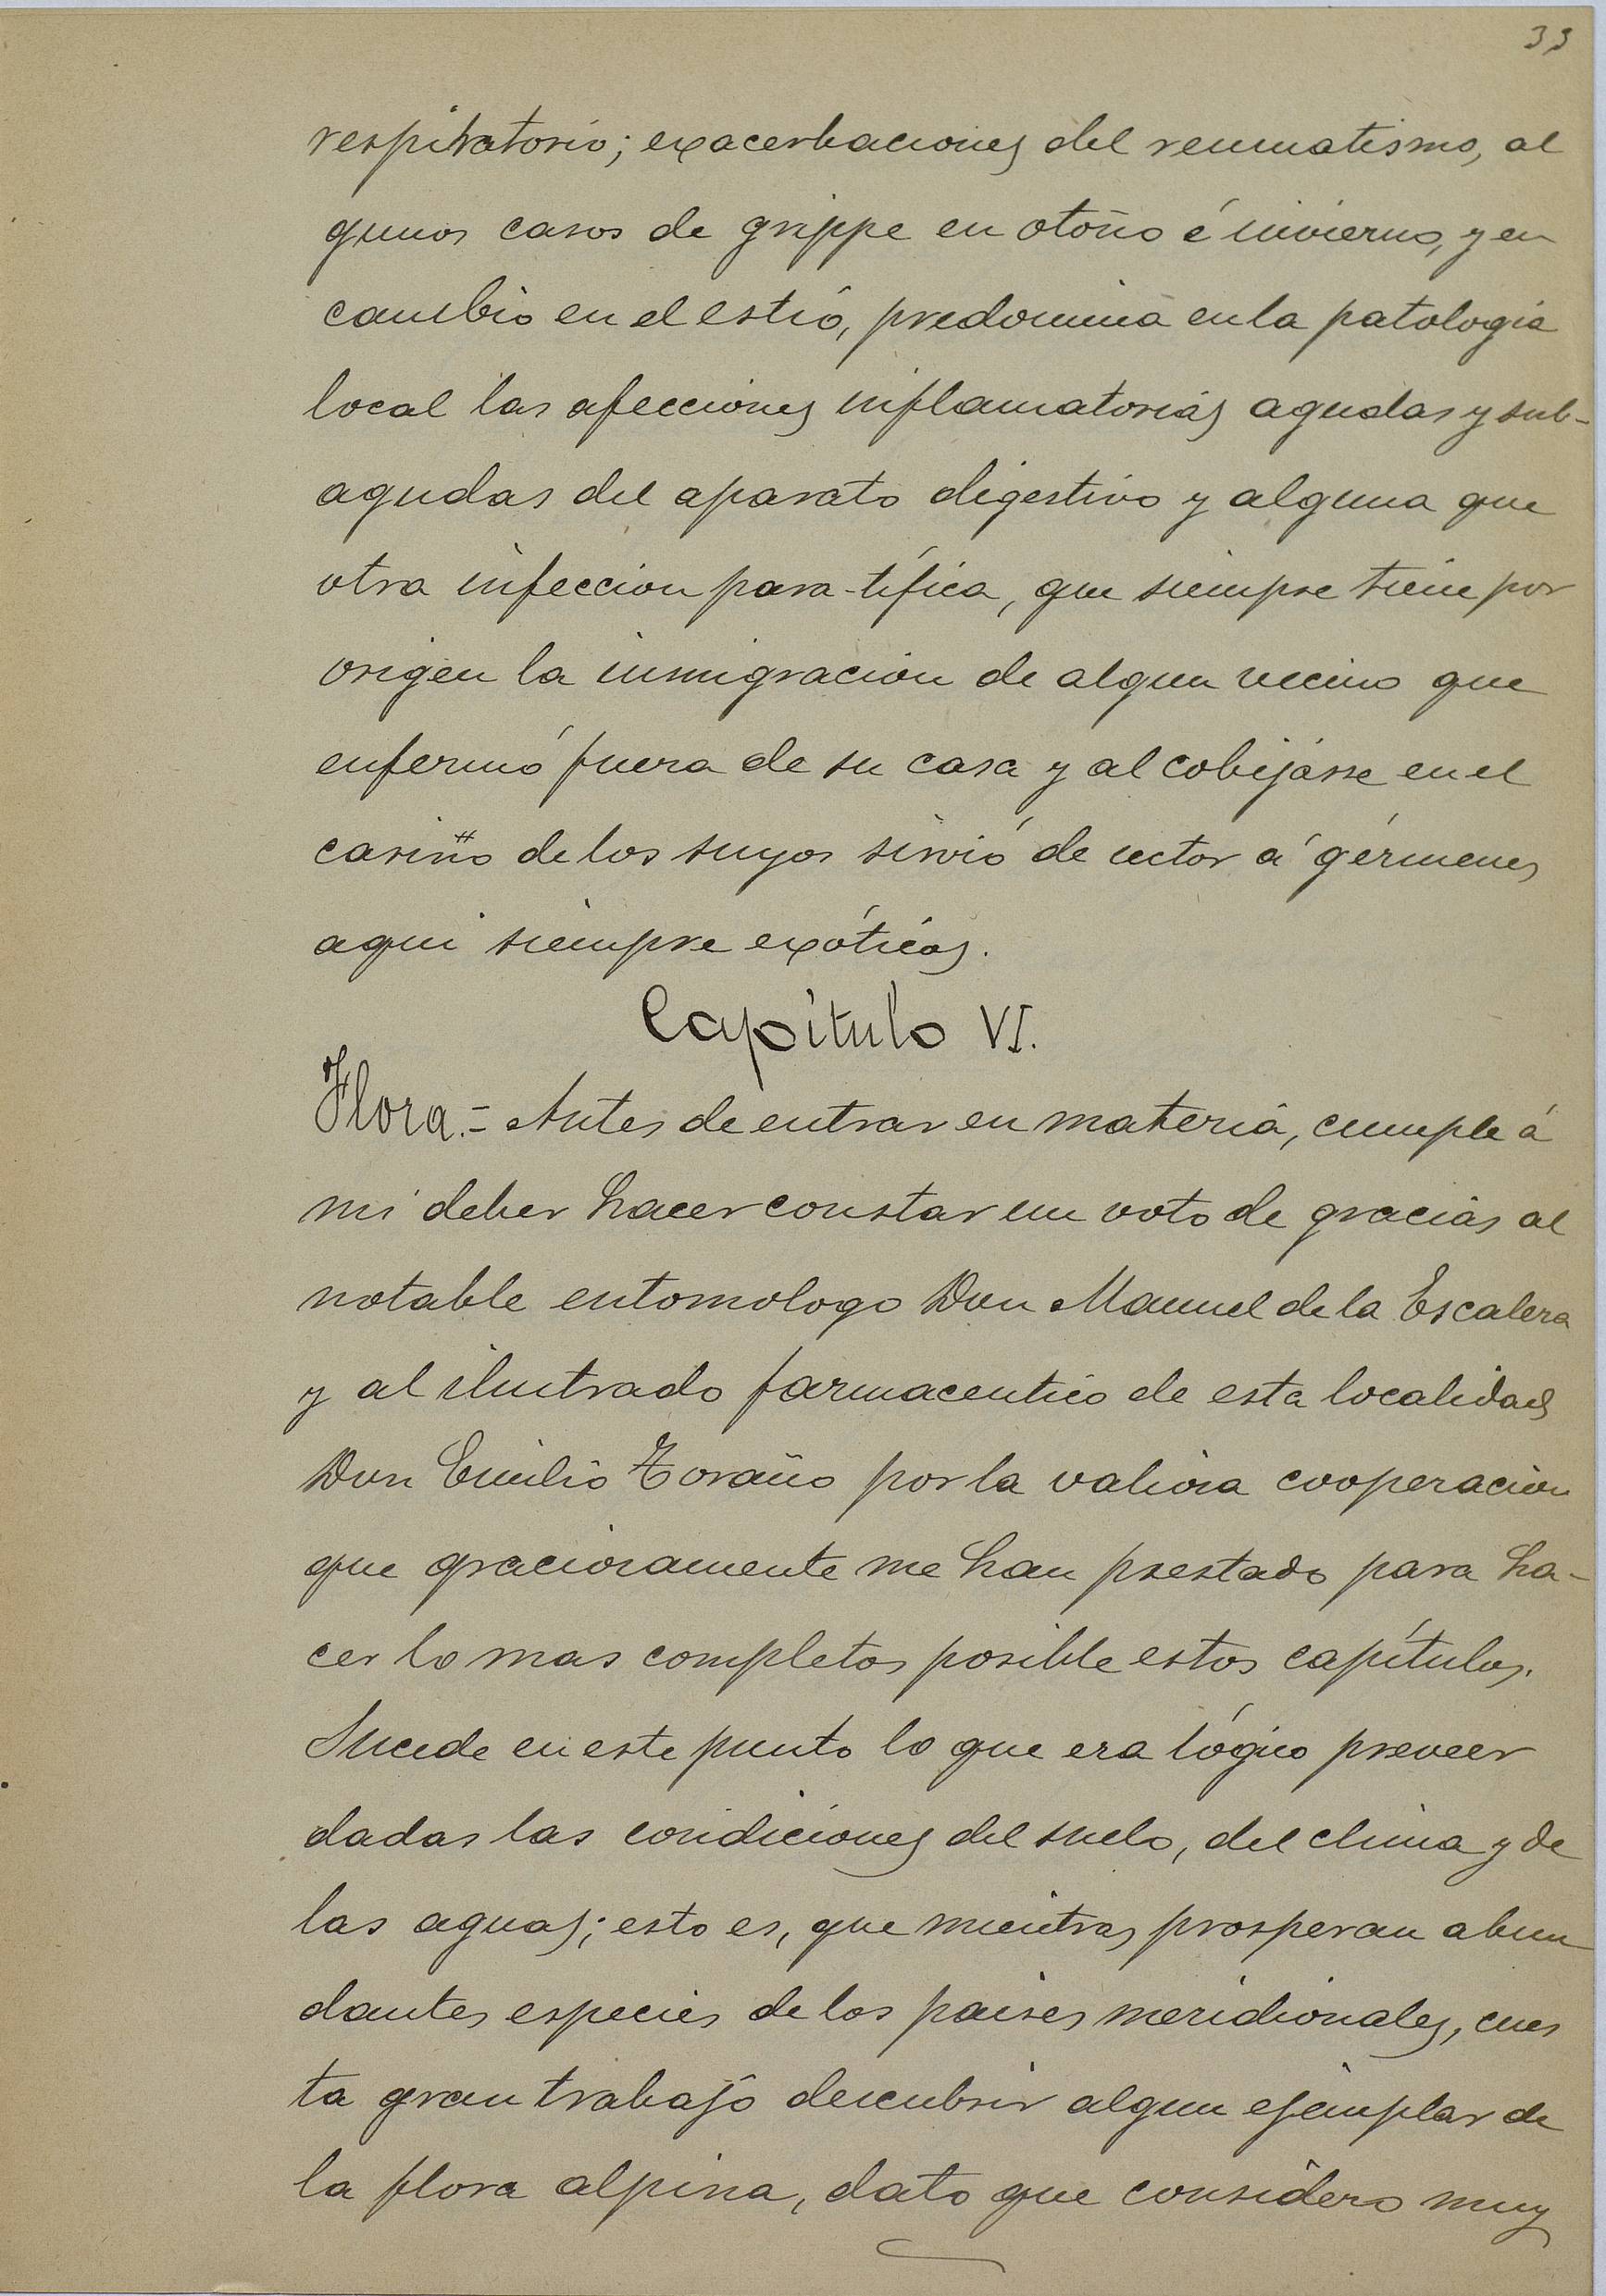 33
respiratorio; exacerbaciones del reumatismo, al
gunos casos de grippe en otoño é invierno, y en
cambio en el estío, predomina en la patologia
local las afecciones inflamatorias agudas y sub-
agudas del aparato digestivo y alguna que
otra infeccion para-tífica, que siempre tiene por
origen la inmigracion de algun vecino que
enfermó fuera de su casa y al cobijárse en el
cariño de los suyos sirvió de vector á gérmenes
aqui siempre exóticos.
Capítulo VI.
Flora.= Antes de entrar en materia, cumple á
mi deber hacer constar un voto de gracias al
notable entomologo Don Manuel de la Escalera
y al ilustrado farmaceutico de esta localidad
Don Emilio Toraño por la valiosa cooperacion
que graciosamente me han prestado para ha-
cer lo mas completos posible estos capítulos.
Sucede en este punto lo que era lógico preveer
dadas las condiciones del suelo, del clima y de
las aguas; esto es, que mientras prosperan abun
dantes especies de los paises meridionales, cues
ta gran trabajo descubrir algun ejemplar de
la flora alpina, dato que considero muy